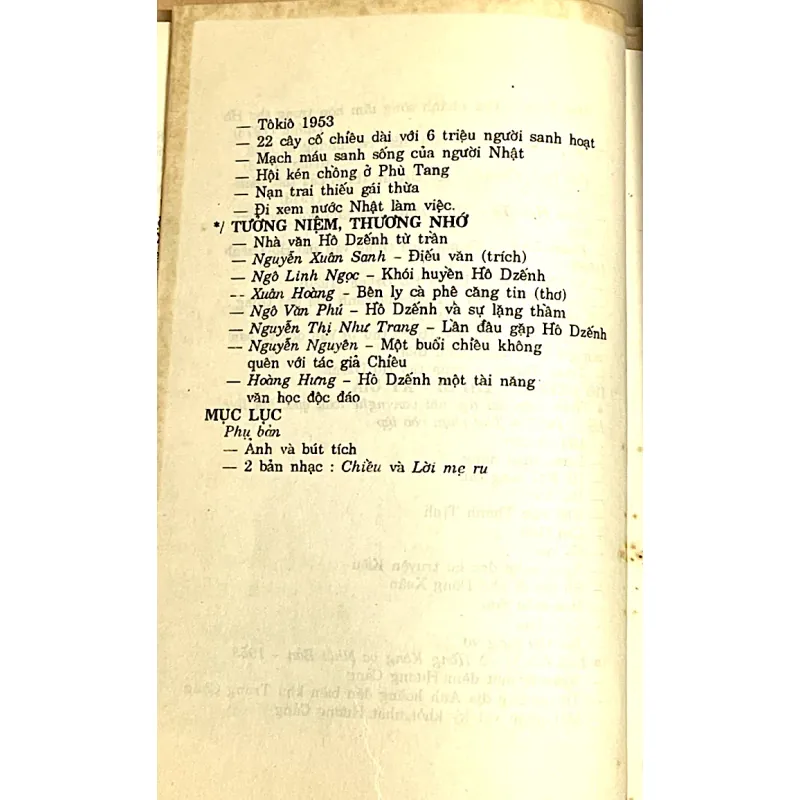 — Tôkiô 1953
— 22 cây cố chiều dài với 6 triệu người sanh hoạt
— Mạch máu sanh sống của người Nhật
— Hội kén chồng ở Phù Tang
— Nạn trai thiếu gái thừa
— Đi xem nước Nhật làm việc.
*/ TƯỞNG NIỆM, THƯƠNG NHỚ
— Nhà văn Hồ Dzếnh từ trần
— Nguyễn Xuân Sanh – Điếu văn (trích)
— Ngô Linh Ngọc – Khói huyền Hồ Dzếnh
-- Xuân Hoàng - Bên ly cà phê căng tin (thơ)
— Ngô Văn Phú – Hồ Dzếnh và sự lặng thầm
— Nguyễn Thị Như Trang – Lần đầu gặp Hồ Dzếnh
— Nguyễn Nguyên – Một buổi chiều không
quên với tác giả Chiều
— Hoàng Hưng – Hồ Dzếnh một tài năng
văn học độc đáo
MỤC LỤC
Phụ bản
— Ảnh và bút tích
— 2 bản nhạc : Chiều và Lời mẹ ru